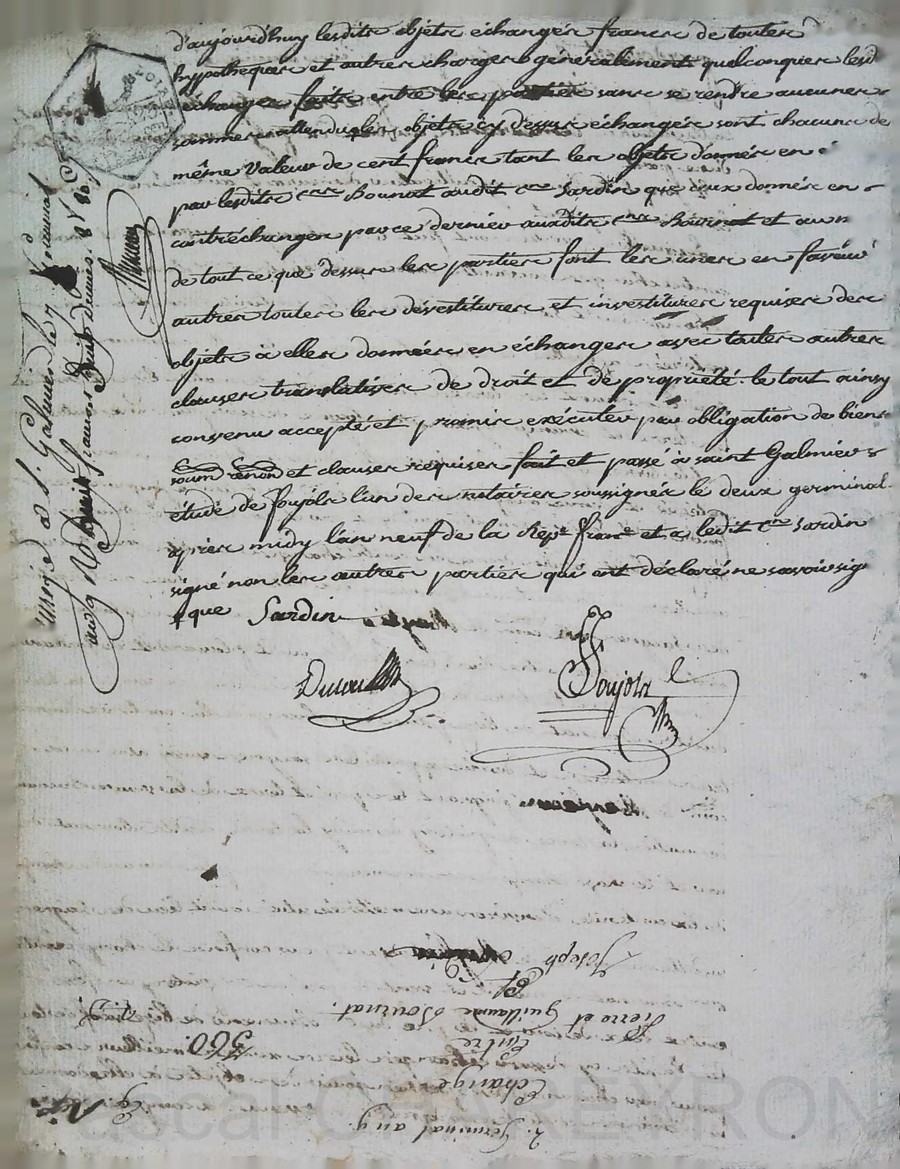 d'aujourd'huy lesdits objets échangés francs de toutes
hypotheques et autres charges généralement quelconques lesd
échanges faits entre les parties sans se rendre aucunes
sommes attendu qles objets cy dessus échangés sont chacuns de
même valeur de cent francs tant les objets donnés en é
par lesdits cens Bournat audit cen Sardin que ceux donnés en
contréchanges par ce dernier auxdits cens Bournat et au m
de tout ce que dessus les parties font les unes en faveur
autres toutes les dévestitures et investitures requises des
objets à elles données en échanges avec toutes autres
clauses translatives de droit et de propriété. le tout ainsy
convenu accepté et promis exécuter par obligation de biens
soum renon et clauses requises fait et passé à saint Galmier
étude de foujols l'un des notaires soussignés le deux germinal
après midy l'an neuf de la Repe frane et a ledit cen Sardin
signé non les autres parties qui ont déclaré ne savoir sig
que Sardin
Foujols
Enregé a St Galmier le 7 Germinal
an 9
francs
Joseph
Et
Pierre et Guillaume Bournat.
Entre
Echange
2. Germinal an 9.
560.